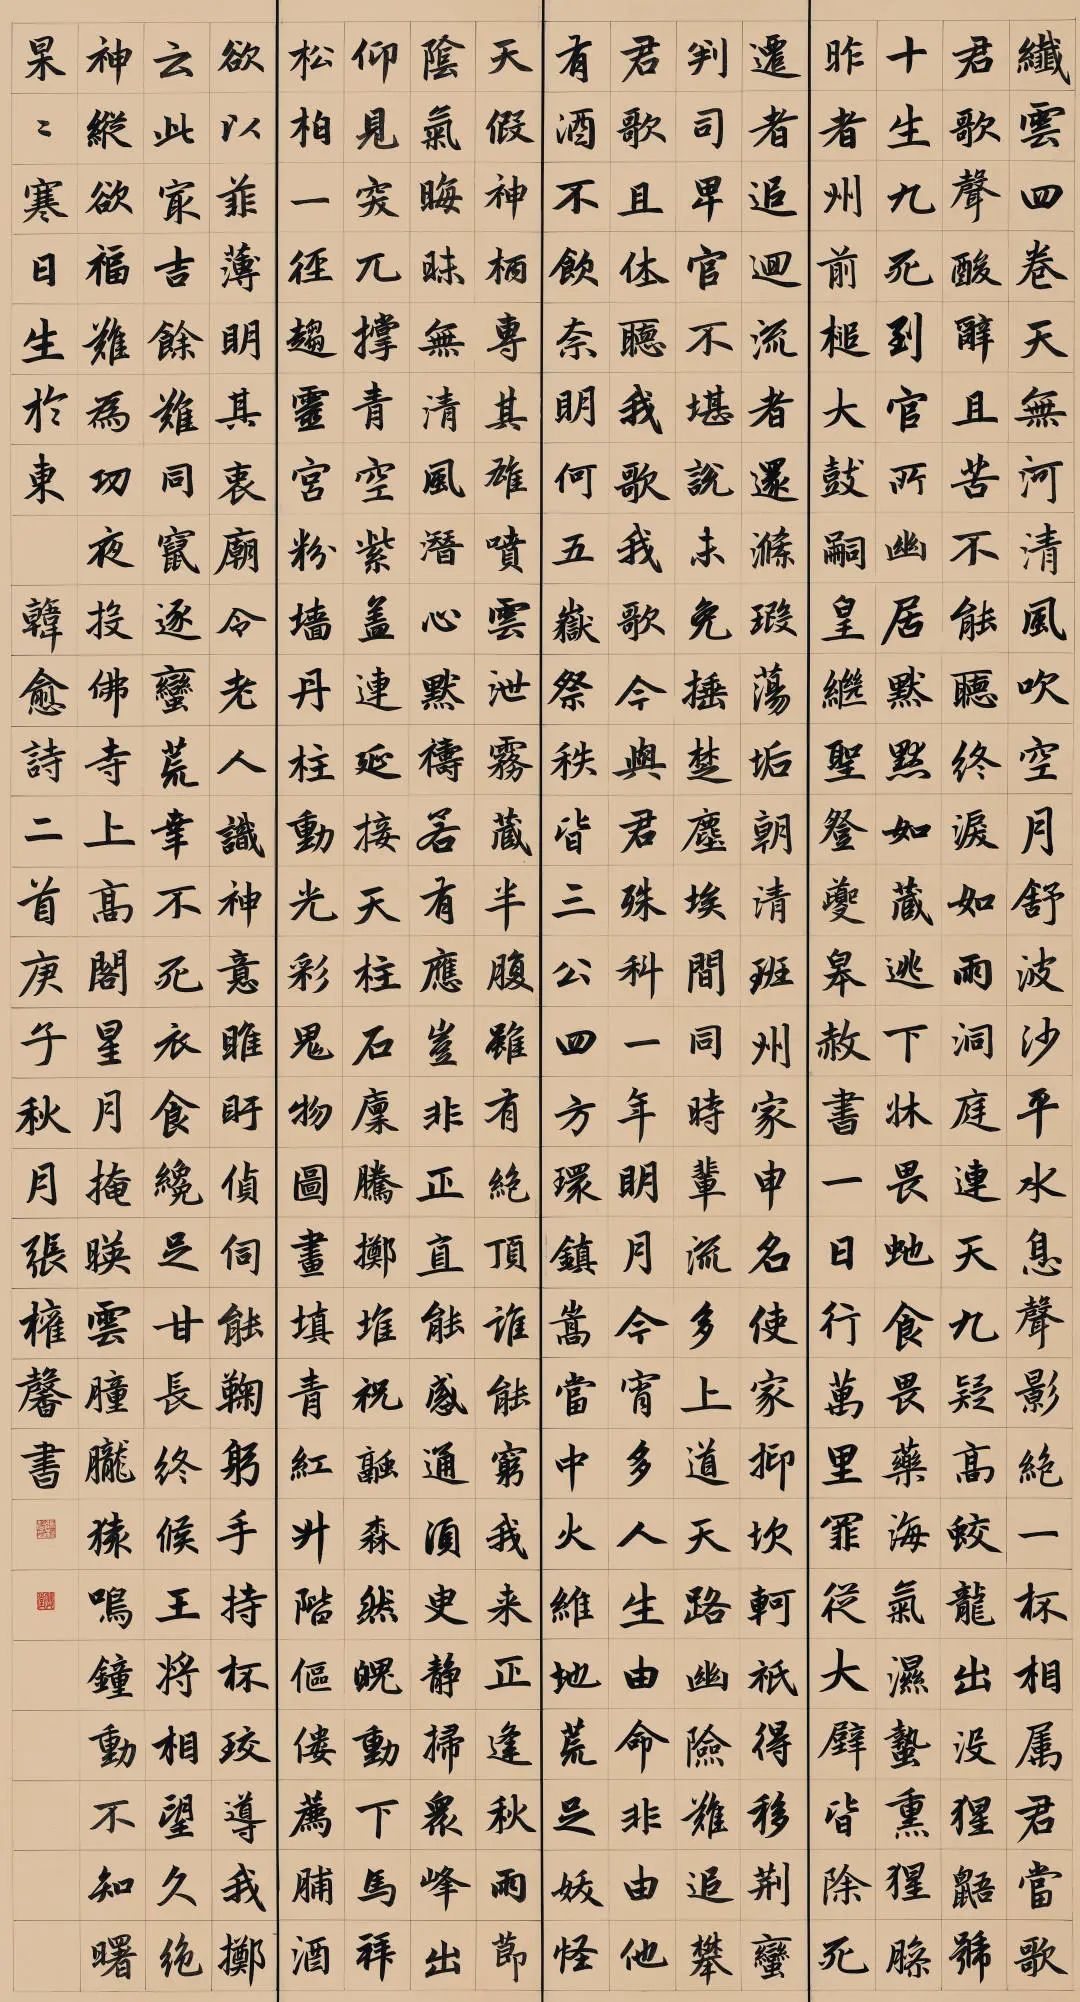 纖雲四卷天無河清風吹空月舒波沙平水息聲影絕一杯相属君當歌
君歌聲酸辭且苦不能聽終淚如雨洞庭連天九疑高蛟龍出没猩鼯號
十生九死到官所幽居默默如藏逃下牀畏虵食畏藥海氣濕蟄熏猩臊
昨者州前槌大鼓嗣皇繼聖登夔皋赦書一日行萬里罪從大辟皆除死
遷者追迴流者還滌瑕蕩垢朝清班州家申名使家抑坎軻祇得移荆蠻
判司卑官不堪說未免捶楚塵埃間同時輩流多上道天路幽險難追攀
君歌且休聽我歌我歌今與君殊科一年明月今宵多人生由命非由他
有酒不飲奈明何五嶽祭秩皆三公四方環鎮嵩當中火維地荒足妖怪
天假神柄專其雄噴雲泄霧藏半腹雖有絕頂誰能窮我来正逢秋雨節
陰氣晦昧無清風潛心默禱若有應豈非正直能感通須臾静掃衆峰出
仰見突兀撐青空紫蓋連延接天柱石廩騰擲堆祝融森然魄動下馬拜
松柏一徑趨靈宮粉墻丹柱動光彩鬼物圖畫填青紅升階傴僂薦脯酒
欲以菲薄明其衷廟令老人識神意睢盱偵伺能鞠躬手持杯珓導我擲
云此㝡吉餘難同竄逐蠻荒幸不死衣食纔足甘長終候王將相望久绝
神縱欲福難為功夜投佛寺上高閣星月掩暎雲曈曨猿鳴鐘動不知曙
杲〻寒日生於東 韓愈詩二首庚子秋月張権馨書